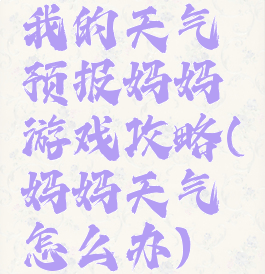 我的天气
预报妈妈
游戏攻略(
妈妈天气
怎么办)